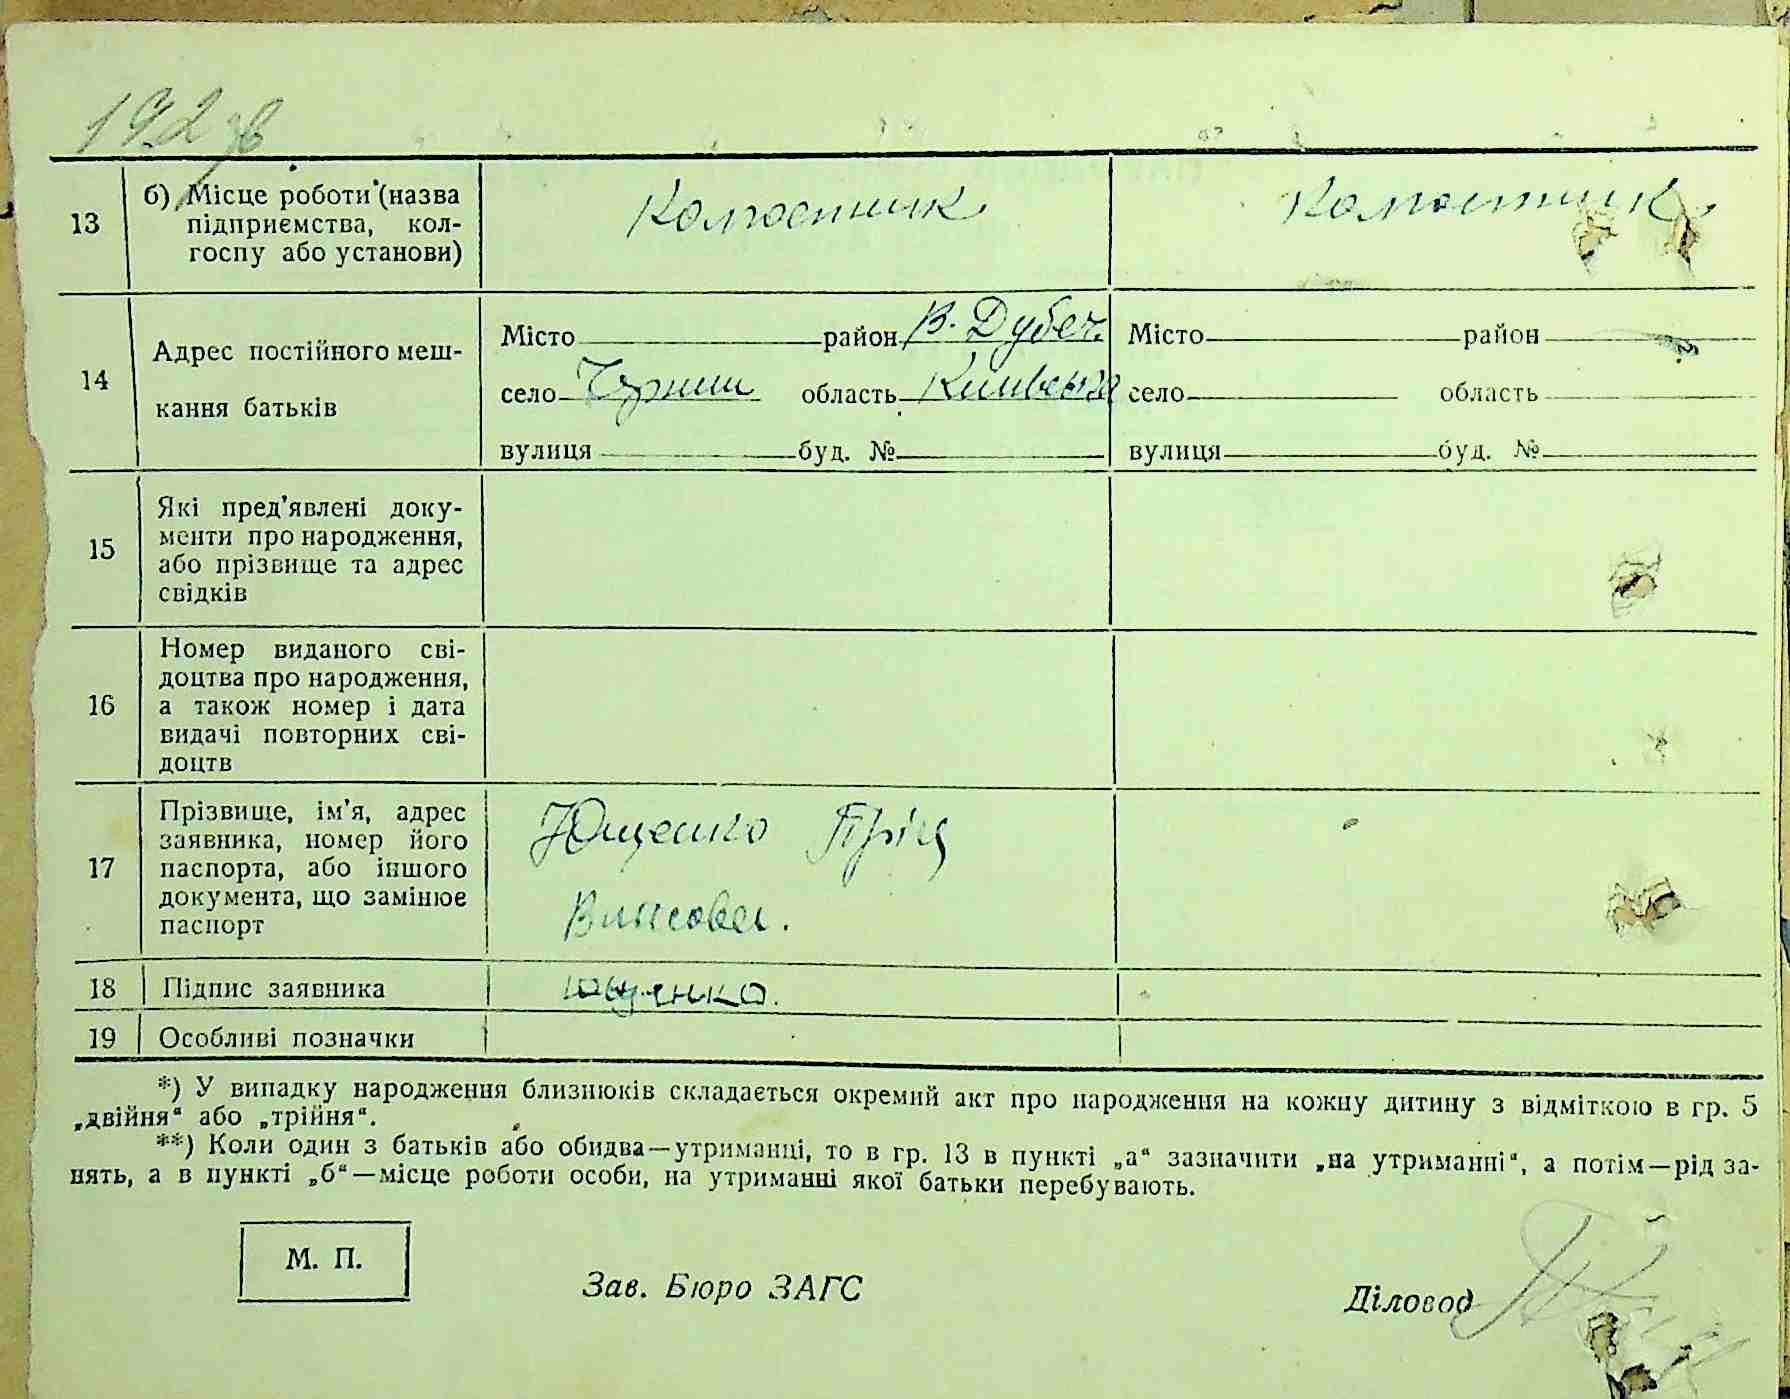 13 б) Місце роботи (назва
підприємства, кол-
госпу або установи)
Колгоспник Колгоспник
14 Адрес постійного меш-
кання батьків
Місто район В. Дубеч. Місто район
село область Київська село область
вулиця буд. № вулиця буд. №
15 Які пред'явлені доку-
менти про народження,
або прізвище та адрес
свідків
16 Номер виданого сві-
доцтва про народження,
а також номер і дата
видачі повторних сві-
доцтв
17 Прізвище, ім'я, адрес
заявника, номер його
паспорта, або іншого
документа, що замінює
паспорт
Ющенко
18 Підпис заявника Ющенко.
19 Особливі позначки
*) У випадку народження близнюків складається окремий акт про народження на кожну дитину з відміткою в гр. 5
„двійня“ або „трійня“.
**) Коли один з батьків або обидва—утриманці, то в гр. 13 в пункті „а“ зазначити „на утриманні“, а потім—рід за-
нять, а в пункті „б“—місце роботи особи, на утриманні якої батьки перебувають.
М. П.
Зав. Бюро ЗАГС Діловод